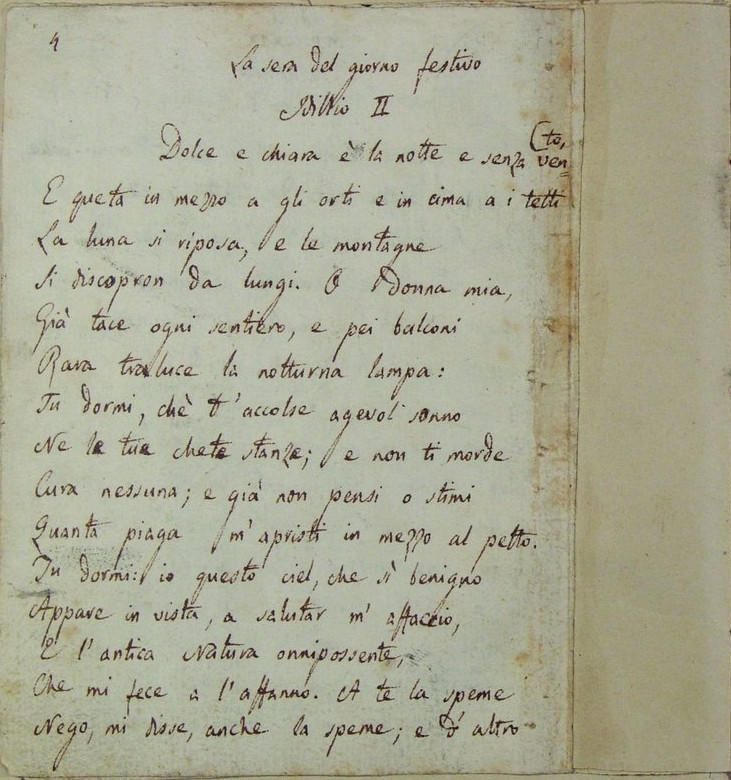 4
La sera del giorno festivo
Idillio II
(to,
Dolce e chiara è la notte e senza ven=
E queta in mezzo a gli orti e in cima a i tetti
La luna si riposa, e le montagne
Si discopron da lungi. O Donna mia,
Già tace ogni sentiero, e pei balconi
Rara traluce la notturna lampa:
Tu dormi, chè t'accolse agevol sonno
Ne le tue chete stanze; e non ti morde
Cura nessuna; e già non pensi o stimi
Quanta piaga m'apristi in mezzo al petto.
Tu dormi: io questo ciel, che sì benigno
Appare in vista, a salutar m'affaccio,
E l'antica Natura onnipossente,
Che mi fece a l'affanno. A te la speme
Nego, mi disse, anche la speme; e d'altro